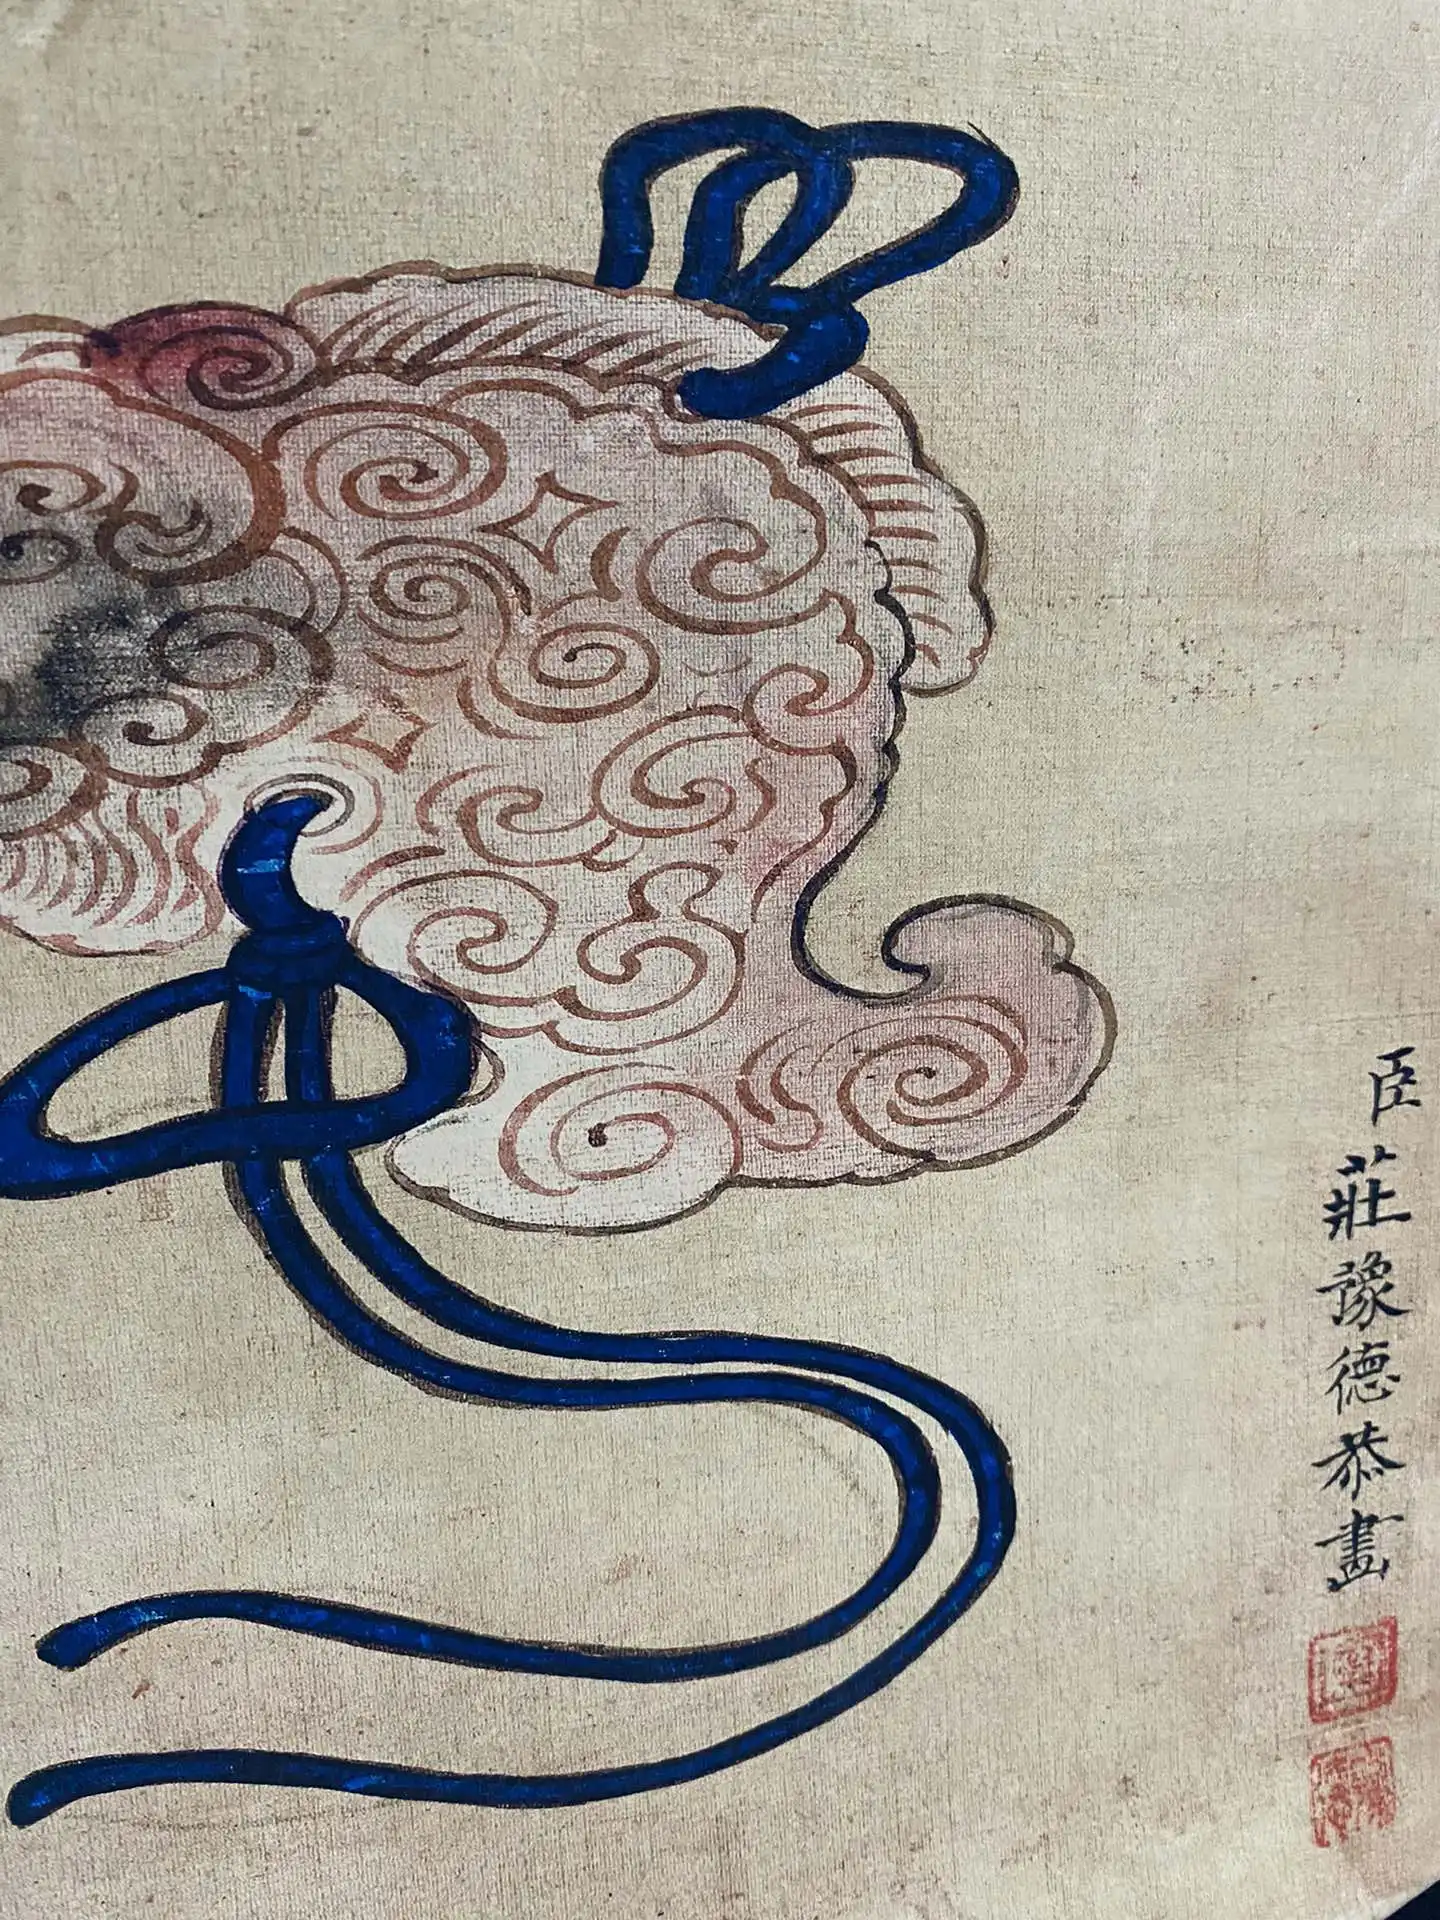 臣莊豫德恭畫